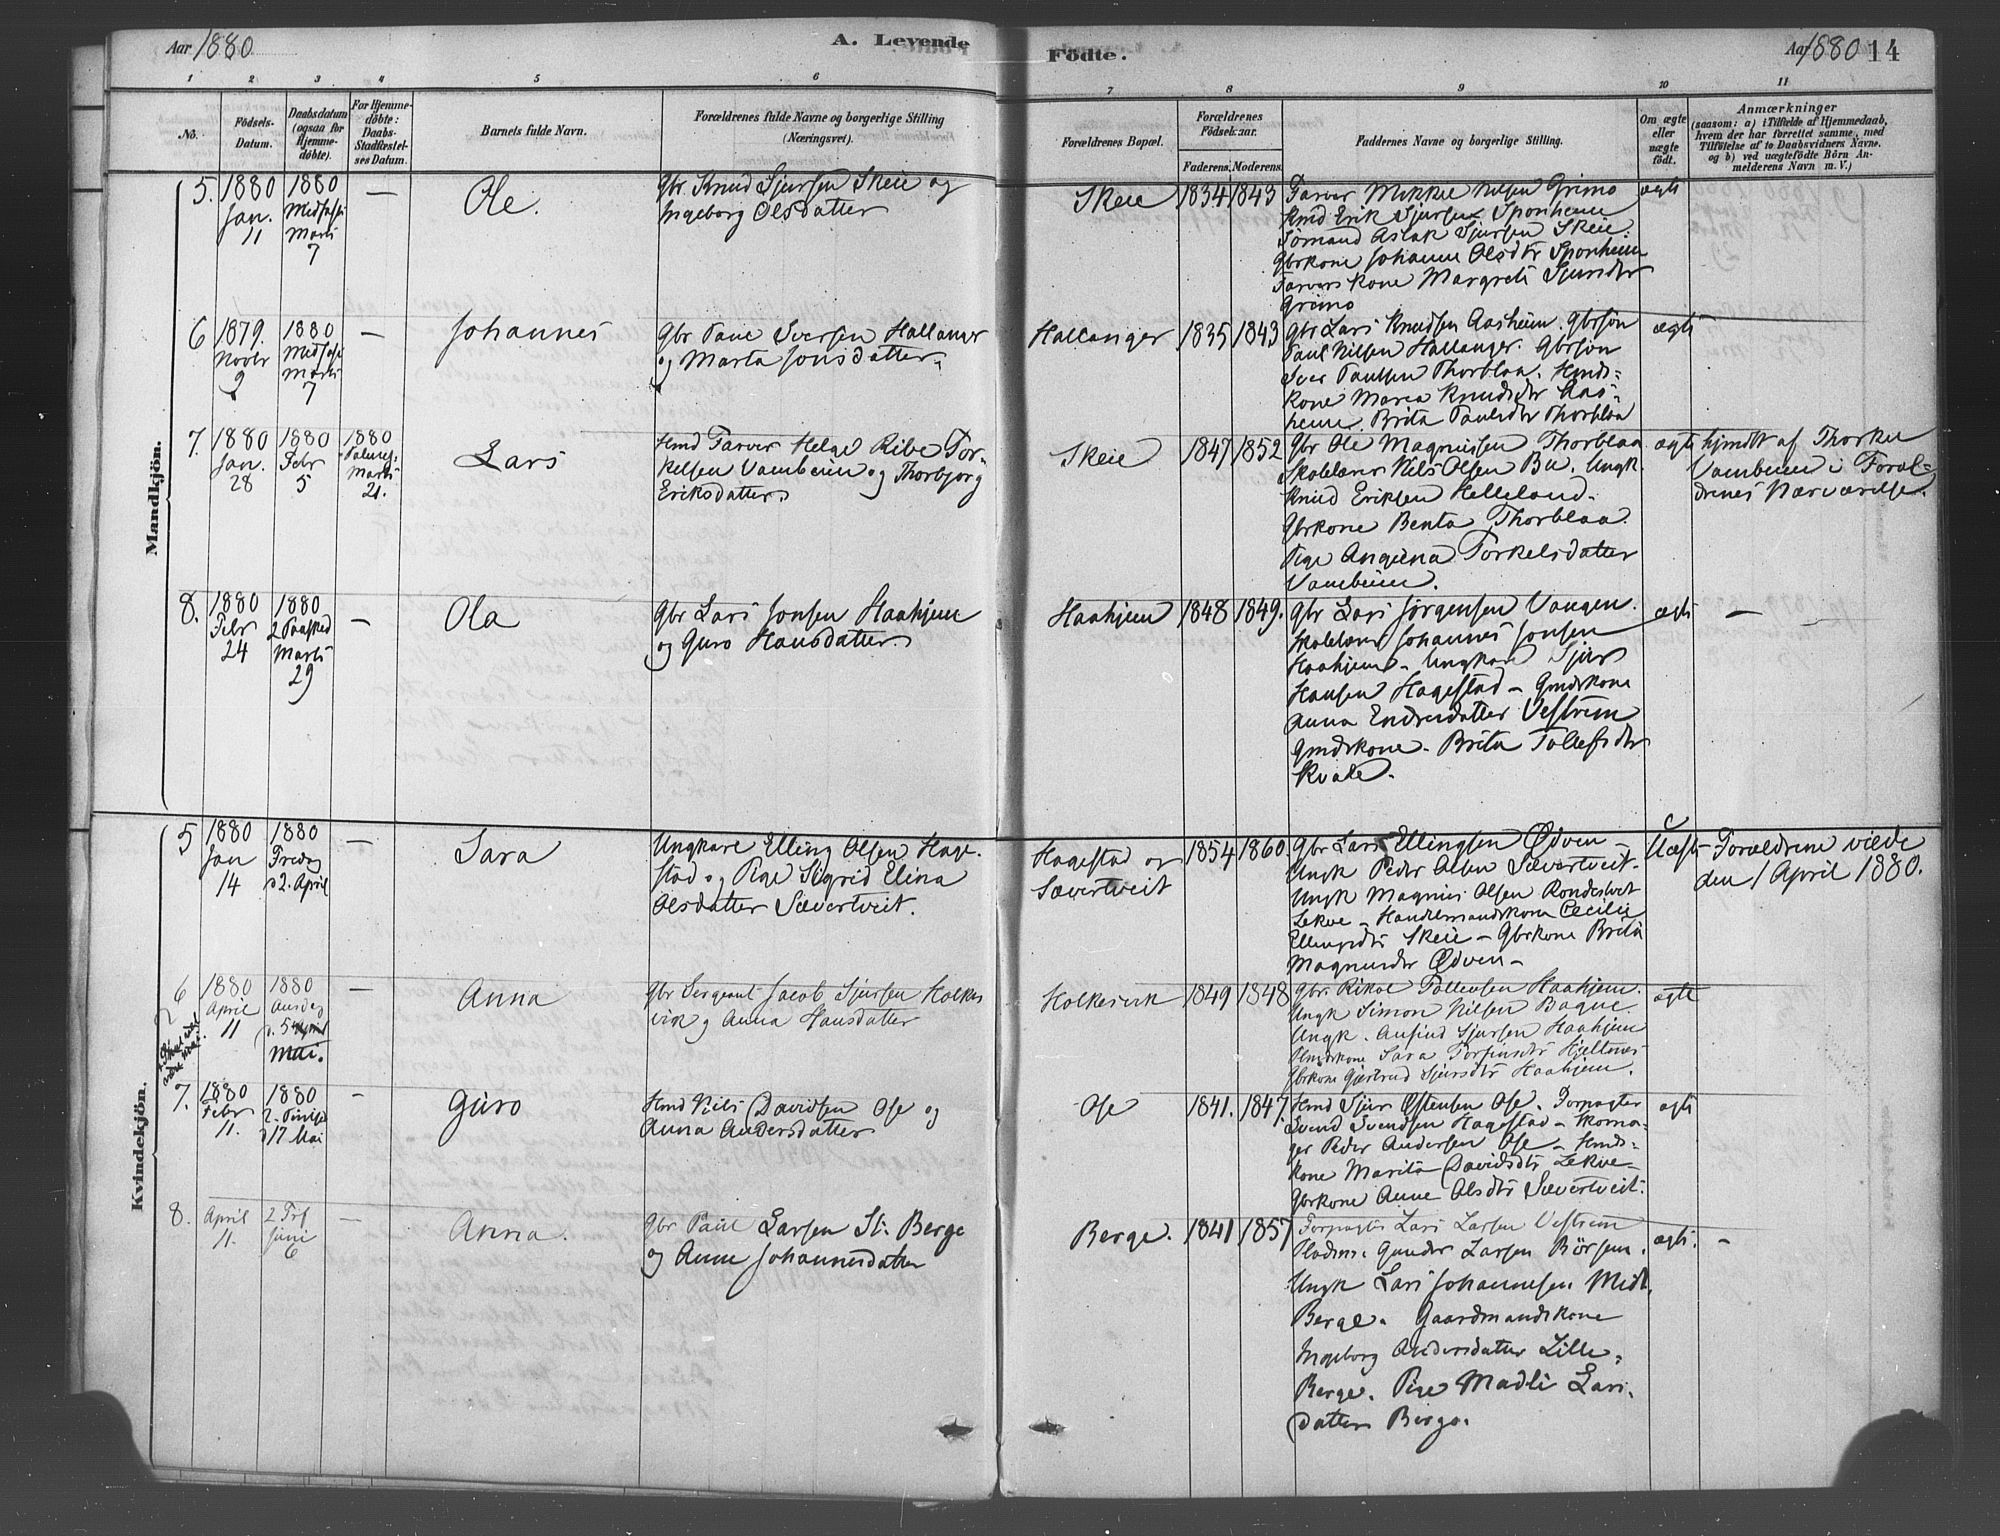 Aar 1880
A. Levende
Födte.
Aar 1880 14
1 2 3 4 5 6 7 8 9 10 11
No.
Födsels-
Datum.
Daabsdatum
(ogsaa for
Hjemme-
döbte).
For Hjemme-
döbte:
Daabs-
Stadfæstel-
ses Datum.
Barnets fulde Navn.
Forældrenes fulde Navne og borgerlige Stilling
(Næringsvei).
Forældrenes Bopæl.
Forældrenes
Födselsaar.
Faderens. Moderens.
Faddernes Navne og borgerlige Stilling.
Om ægte
eller
uægte
födt.
Anmærkninger
(saasom: a) i Tilfælde af Hjemmedaab,
hvem der har forrettet samme, med
Tilföielse af to Daabsvidners Navne,
og b) ved uægtefödte Börn An-
melderens Navn m. V.)
Mandkjön.
5. 1880
Jan.
11
1880
Marts
7
—
Ole.
Gbr. Knud Sjursen Skeie og
Ingeborg Olsdatter
Skeie
1834 1843
Farver Mikkel Nilsen Grimo
Hmd Erik Sjursen Sponheim
Sömand Aslak Sjursen Skeie.
Gbrkone Johanne Olsdtr Sponheim
Farvers kone Margrete Sjursdtr
Grimo
ægte
6 1879.
Novbr
9
1880
Marts
7
—
Johannes
Gbr Paul Iversen Hallanger
og Marta Jonsdatter.
Hallanger
1835 1843
Gbr Lars Knudsen Aasheim. Gbrsön
Paul Nilsen Hallanger. Gbrsön
Iver Paulsen Thorblaa. Hmds-
kone Maria Knudsdtr Aas-
heim. Brita Paulsdtr Thorblaa
ægte
7. 1880
Jan.
28
1880
Febr
5
1880
Palmes.
Marts
21.
Lars
Hmd Farver Helge Ribe Tor-
kelsen Vambeim og Thorbjorg
Eriksdatter.
Skeie
1847 1852
Gbr Ole Magnusen Thorblaa
Skolelærer Nils Olsen Bu. Ungk.
Knud Eriksen Helleland.
Gbrkone Benta Thorblaa.
Pige Angunna Torkelsdatter
Vambeim.
ægte
hjmdt af Thorkel
Vambeim i Foræl-
drenes Nærværelse.
8. 1880
Febr
24
1880
2 Paasked
Marts
29
—
Ola
Gbr Lars Jonsen Haahjem
og Guro Hansdatter.
Haahjem
1848 1849.
Gbr Lars Jörgensen Vangen.
Skolelærer Johannes Jonsen
Haahjem. Ungkar Sjur
Hansen Hagestad — Gmdskone
Anna Endresdatter Vestrem
Gmdskone. Brita Tollefsdtr
Kvale.
ægte
—
Kvindekjön.
5 1880
Jan
14
1880
Fredag
d 2. April
—
Sara
Ungkarl Elling Olsen Hage-
stad og Pige Sigrid Elina
Olsdatter Sævertveit.
Hagestad og
Sævertveit
1854 1860.
Gbr Lars Ellingsen Ödven —
Ungk Peder Olsen Sævertveit.
Ungk Magnus Olsen Rondestveit
Lekve — Handelsmandskone Cecilie
Ellingsdtr Skeie — Gbrkone Brita
Magnusdtr Ödven —
Uægte
Forældrene viede
den 1 April 1880.
6 1880
April
11
1880
Onsdag
d. 5
Mai.
—
Anna
Gbr Sergeant Jacob Sjursen Holke-
vik og Anna Hansdatter
Holkesvik
1849 1848
Gbr. Rikol Tollevsen Haahjem.
Ungk Simon Nilsen Bagne.
Ungk. Anfind Sjursen Haahjem
Hmdskone Sara Torfinsdtr Hjeltnes
Gbrkone Gjertrud Sjursdtr Haahjem.
ægte
7. 1880
Febr
11.
1880
2. Pintsed
d 17 Mai
—
Guro
Hmd Nils Davidsen Ose og
Anna Andersdatter
Ose
1841. 1847.
Hmd Sjur Östensen Ose. Forpagter
Svend Svendsen Hagestad — Skoma-
ger Peder Andersen Ose — Hmds-
kone Marita Davidsdtr Lekve —
Gbrkone Anne Olsdtr Sævertveit.
ægte
8. April
11.
Juni
6
—
Anna.
Gbr Paul Larsen St. Berge
og Anne Johannesdatter
Berge.
1841 1857
Forpagter Lars Larsen Vestrem
Gunder Larsen Börsem.
Ungk Lars Johannesen Midt
Berge. Gaardmandskone
Ingeborg Andersdatter Lille-
Berge. Pige Madli Lars-
datter Berge.
ægte.
—